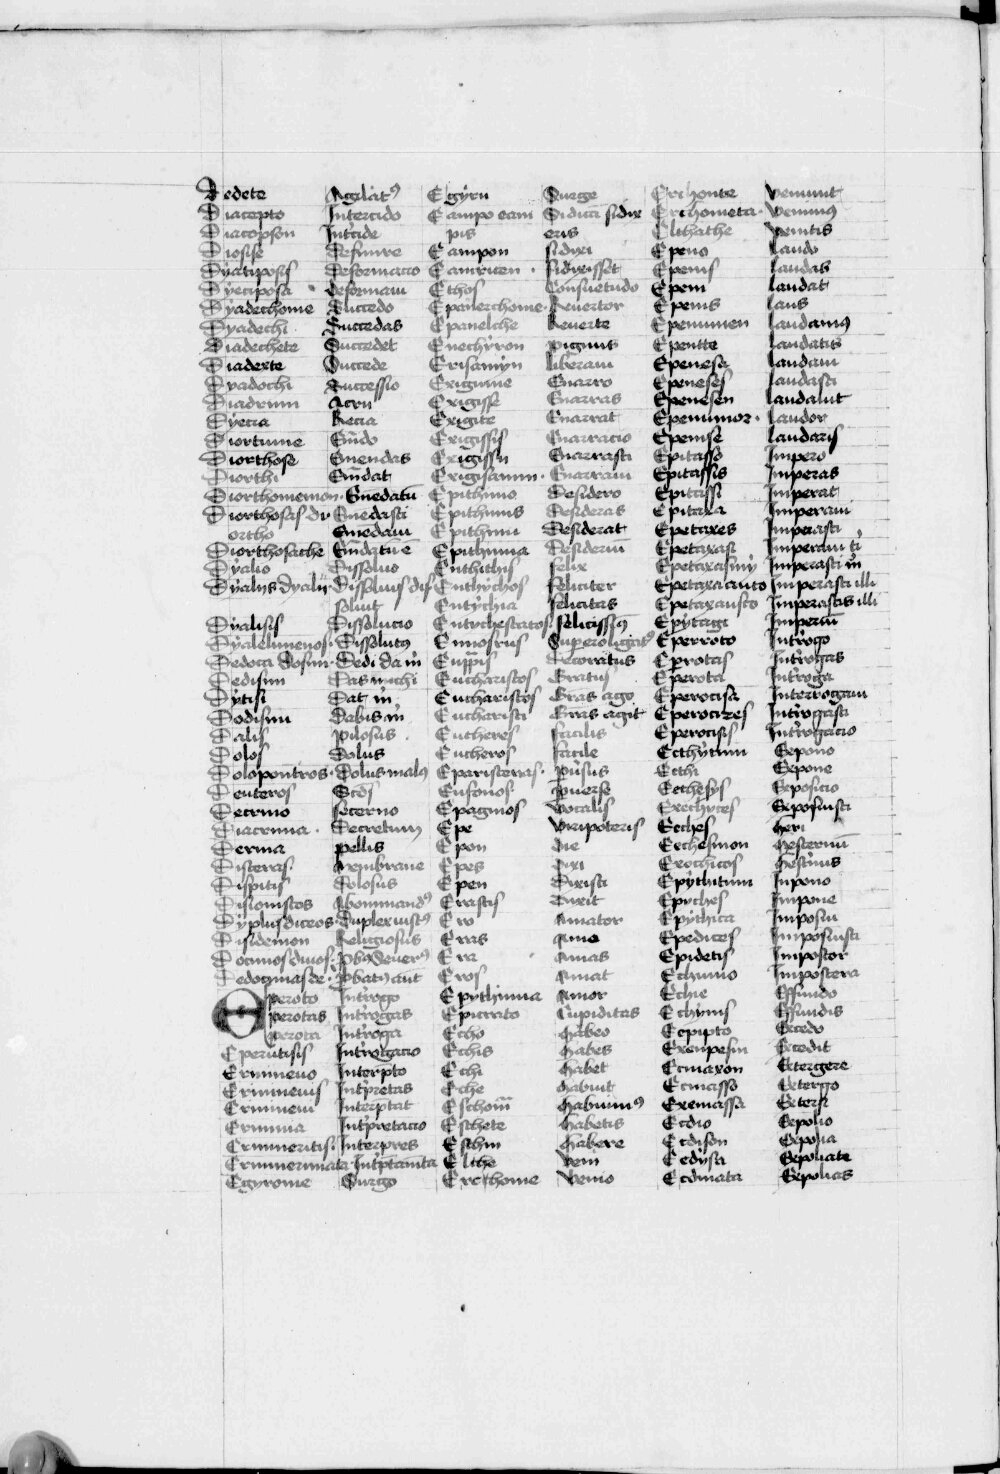 Dedete Agilatꝰ Egyru Surge Erchonte Veniunt
Diacopto Intercido Campo eam Siduxi sidix Erchometa Venimꝰ
Diacopson Int'cide pis eris Elthathe Venitis
Diosise Definire Campon sidixi Epeno Laudo
Dyatiposis Deformacio Camcuen sidixisset Epenis Laudas
Dyetiposa Deformaui Ethos Consuetudo Epeni Laudat
Dyadechome Succedo Epanerchome Reuertor Epenis Laus
Dyadechi Succedas Epanelche Reuerte Epenumen Laudamꝰ
Diadechete Succedet Enechyron Pignus Epentte Laudatis
Diadexte Succede Erisamyn Liberaui Epenesa Laudaui
Dyadochi Successio Exigume Enarro Epeneses Laudasti
Diadrum Acru Exigisse Enarras Epenesen Laudauit
Dyecta Recta Exigite Enarrat Epenumor Laudor
Diortume Em̄do Exigissis Enarracio Epenise Laudaris
Diorthose Emendas Exigissu Enarrasti Epitasso Impero
Diorthi Em̄dat Exigisamin Enarraui Epitassis Imperas
Diorthomemon Em̄edatū Epithimo Desidero Epitassi Imperat
Diorthosas dr Em̄edasti Epithimis Desideras Epitaxa Imperaui
ortho Em̄edaui Epithimi Desiderat Epetaxes Imperasti
Diorthosathe Em̄datū e Epithimia Desideriū Epetaxasi Imperaui ti
Dyalio Dissoluo Enthithis felix Epetaxasimy Imperasti m̄
Dyalus dyalu Dissoluis dis Enthychos feliciter Epetaxatauto Imperasti illi
soluit Entychia felicitas Epetaxausto Imperastis illi
Dyalisis Dissolucio Entychestatos felicissīꝰ Epytage Imperiū
Dyalelumenos Dissolutꝰ Ennosrus Superoligatꝰ Eperroto Int'rogo
Dedoca dosim Dedi da m̄ Eupp̄is Decoratus Eprotas Int'rogas
Dedisim Das michi Eucharistos Gratus Eperota Int'roga
Dytisi Dat m̄ Eucharistos Gras ago Eperotisa Interrogaui
Dodisim Dabis m̄ Eucharisti Gras agit Eperotizes Int'rogasti
Dalis Pilosus Eucheres facilis Eperotisis Int'rogacio
Dolos Dolus Eucheros facile Ecthytim Expono
Dolopontros Dolus malꝰ Eparisteras p̄uisus Ecthi Expone
Deuteros Scds Eusonos puerse Ecthesys Exposicio
Decrino secerno Epagmos Vocalis Exechytes Exposuisti
Diacrima Decretum Epe Viripoteris Ecthes heri
Derma pellis Epon die Ecthesinon hesternū
Disteras Membrane Epes dixi Exothicos hesternus
Dispitis Dolosus Epen Dixisti Epythitim Inpono
Disionistos Abominandꝰ Erastis Dixit Epythes Impone
Dyplusdiceos Duplex iustꝰ Ero Amator Epythica Imposui
Disidemon Religiosus Eras Amo Epedites Imposuisti
Docimos dinos Pbꝰ Veterꝰ Era Amas Epidetis Impostor
Dedogmas de Pbatꝰ aut Eros Amat Echuno Impostera
Eperoto Int'rogo Epythimia Amor Echie Effundo
Eperotas Int'rogas Epicrato Cupiditas Echinis Effundis
Eperota Int'roga Echo habeo Ecpipto Excedo
Eperutisis Int'rogacio Echis habes Exenpesin Excedit
Ermineuo Interpto Echi habet Ecmaxon Extergere
Ermineuis Int'pretas Eche habuit Ecmasso Extergo
Ermineui Interptat Eschom̄ habuimꝰ Exemassa Extersi
Erminia Int'pretacio Eschete habetis Ecdio Expolio
Ermineritis Interpres Eschin habere Ecdison Expolia
Erminerimata Int'ptamta Elthe Veni Ecdysa Expoliate
Egyrome Surgo Ercthome Venio Ecdimata Expolias